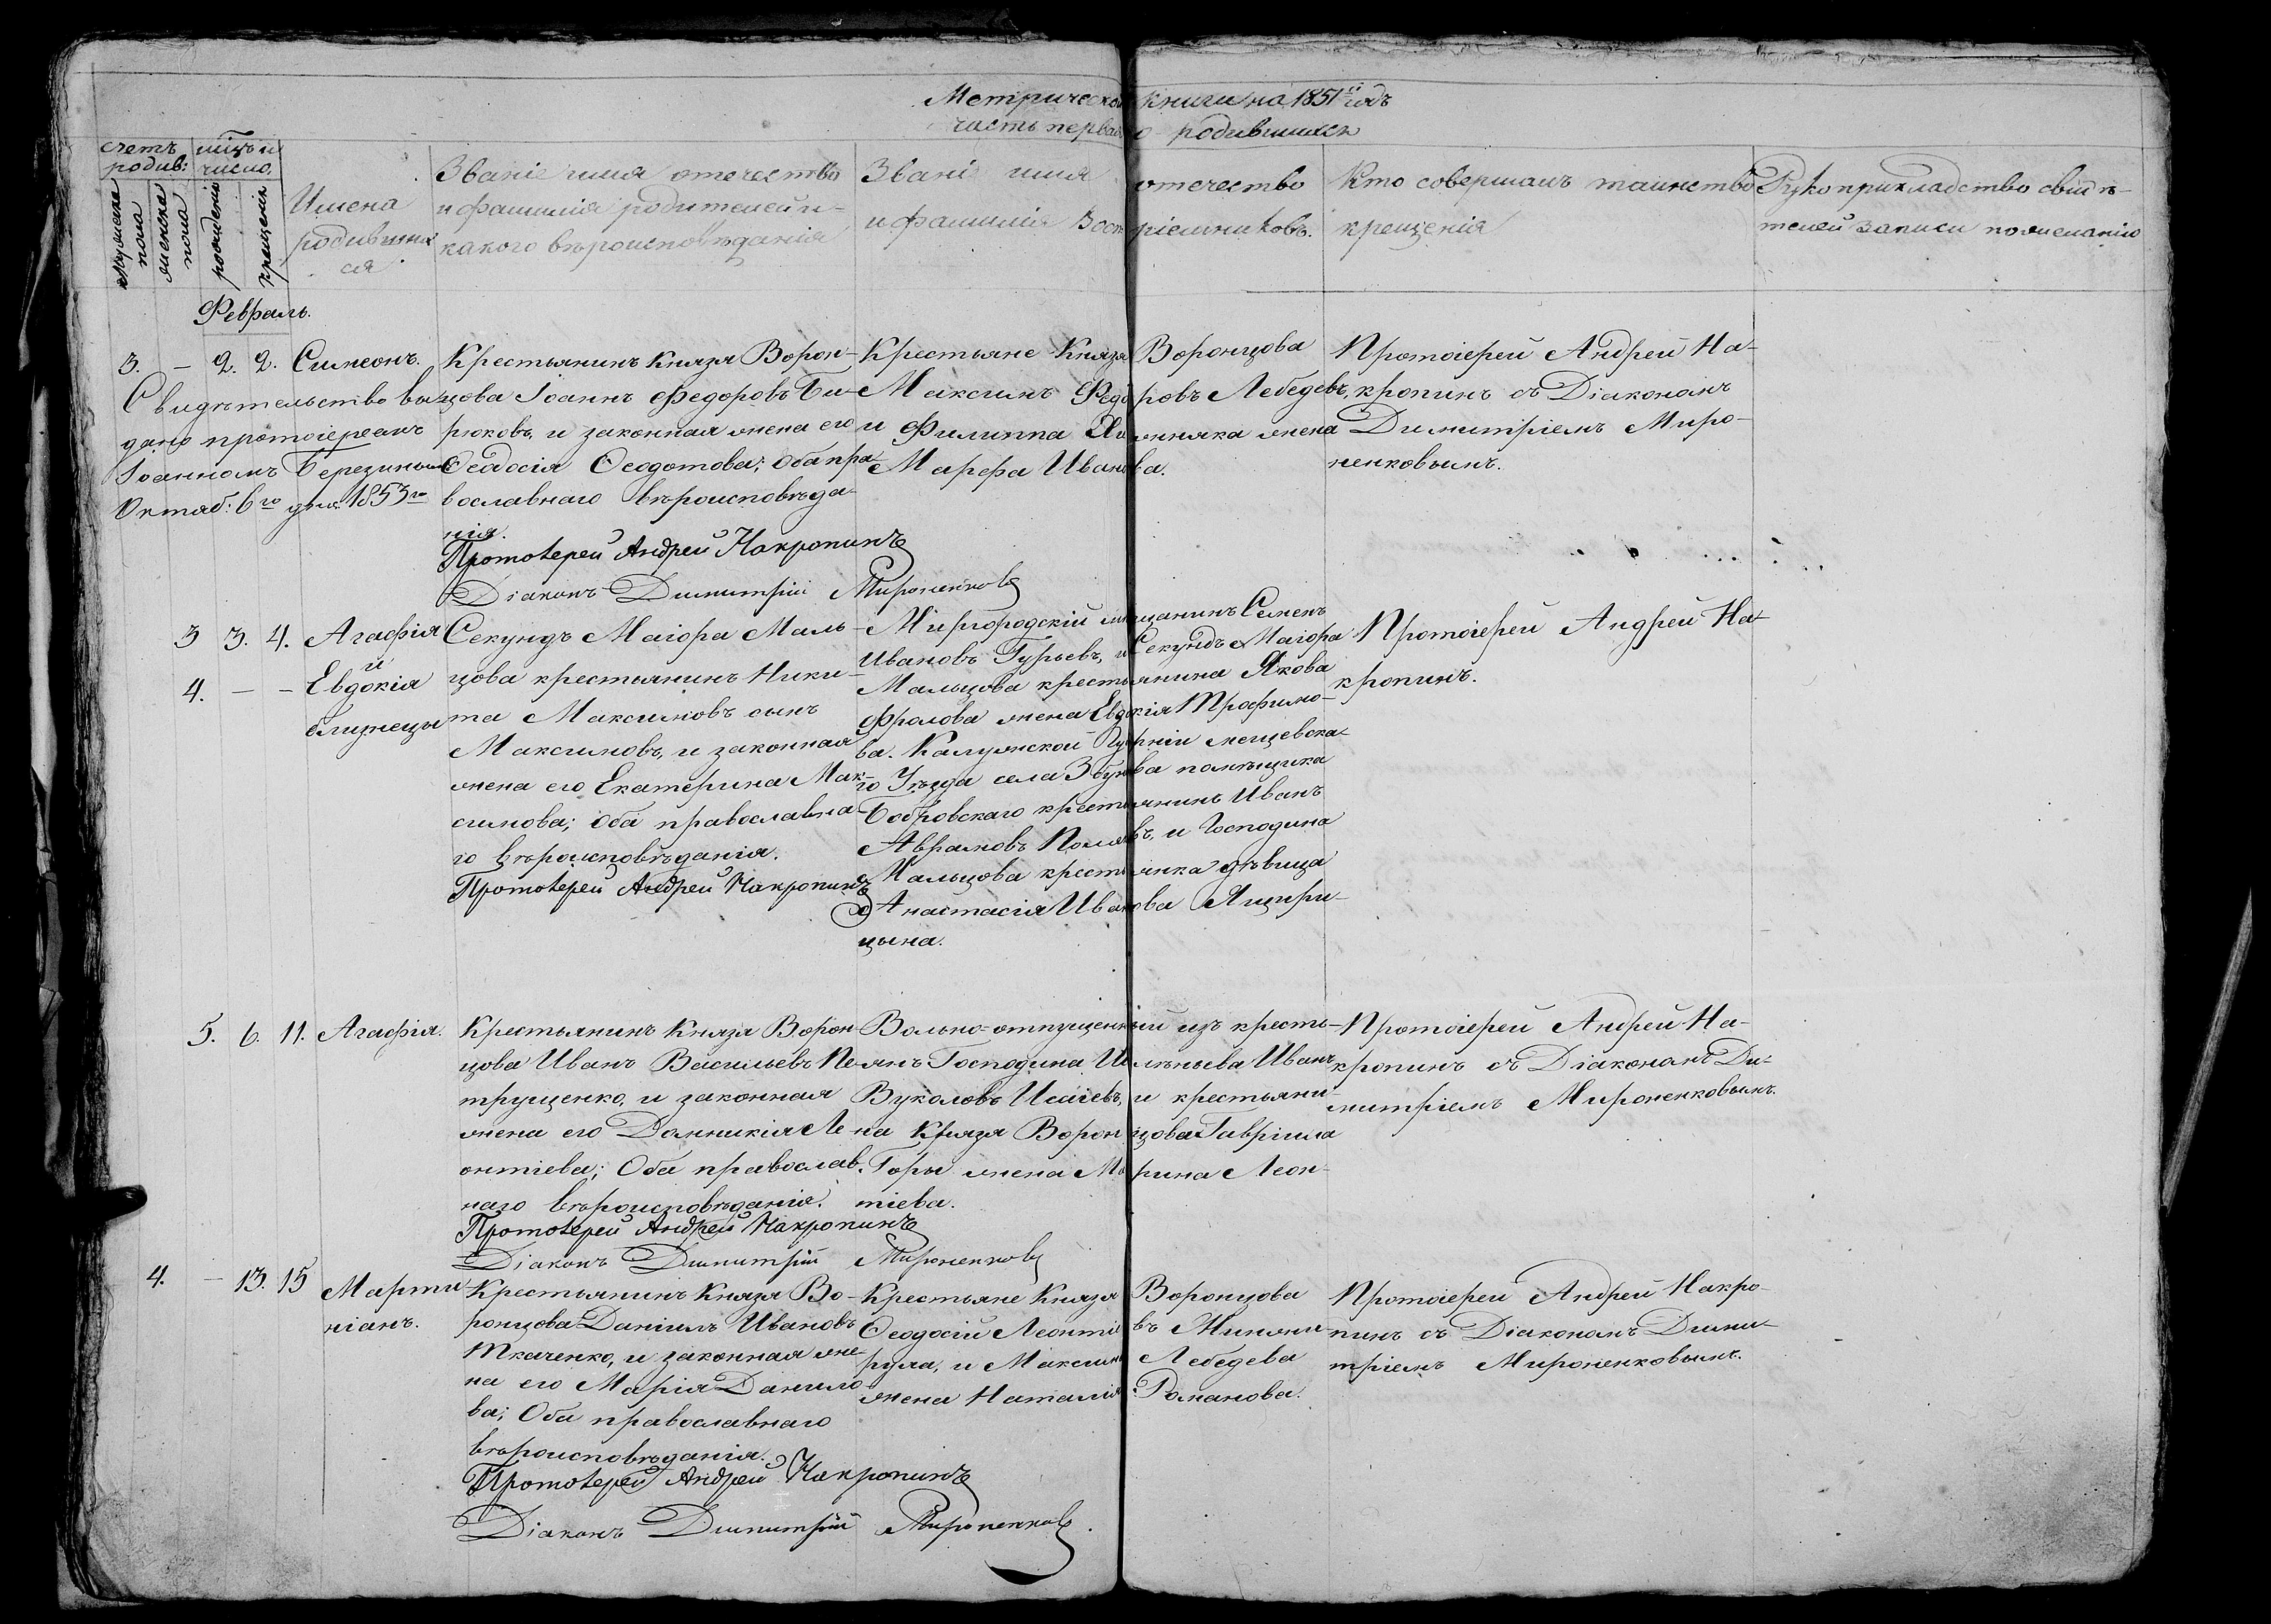 Метрической книги на 1851й годъ
часть первая о родившихся
счетъ родив:
мѣсцъ и число.
мужеска пола
женска пола
рожденія
крещенія
Имена
родивших
ся.
Званіе имя отечество
и фамилія родителей и
какого вѣроисповѣданія
Званіе имя отечество
и фамилія Воспріемниковъ.
Кто совершалъ таинство
крещенія
Рукоприкладство свидѣ-
телей записи по желанію
Февраль.
3. – 2. 2. Симеонъ.
Свидѣтельство вы
дано протоіереемъ
Іоанномъ Березинымъ
Октяб: 6го дня 1853го
Крестьянинъ Князя Ворон-
цова Іоаннъ Федоровъ Би-
рюковъ, и законная жена его
Ѳеодосія Ѳеодотова; оба пра-
вославнаго вѣроисповѣда-
нія.
Протоіерей Андрей Накропинъ
Діаконъ Димитрій Мироненковъ
Крестьяне Князя Воронцова
Максимъ Федоровъ Лебедевъ,
и Филиппа жена
Марфа Иванова.
Протоіерей Андрей На-
кропинъ съ Діакономъ
Димитріемъ Миро-
ненковымъ.
3 3. 4. Агафія
и
4. – – Евдокія
близнецы
Секундъ Маіора Маль-
цова крестьянинъ Ники-
та Максимовъ сынъ
Максимовъ, и законная
жена его Екатерина Мак-
симова; оба православна-
го вѣроисповѣданія.
Протоіерей Андрей Накропинъ
Миргородскій мѣщанинъ Семенъ
Ивановъ Гурьевъ, и Секундъ Маіора
Мальцова крестьянина Якова
Фролова жена Евдокія Трофимо-
ва. Калужской Губерніи мещевска-
го Уѣзда села помѣщика
Бобровскаго крестьянинъ Иванъ
Аврамовъ и Господина
Мальцова крестьянка дѣвица
Анастасія Иванова Ящери-
цына.
Протоіерей Андрей На-
кропинъ.
5. 6. 11. Агафія.
Крестьянинъ Князя Ворон-
цова Иванъ Васильевъ Пе-
трущенко, и законная
жена его Домникія Ле-
онтіева; Оба православ-
наго вѣроисповѣданія.
Протоіерей Андрей Накропинъ
Діаконъ Димитрій Мироненковъ
Вольно-отпущенный изъ кресть-
янъ Господина Иванъ
Вуколовъ Исаіевъ, и крестьяни-
на Князя Воронцова Гавріила
Горы жена Марина Леон-
тіева.
Протоіерей Андрей На-
кропинъ съ Діакономъ Ди-
митріемъ Мироненковымъ.
4. – 13. 15 Марти
ніанъ.
Крестьянинъ Князя Во-
ронцова Даніилъ Ивановъ
Ткаченко, и законная же-
на его Марія Данило-
ва; Оба православнаго
вѣроисповѣданія.
Протоіерей Андрей Накропинъ
Діаконъ Димитрій Мироненковъ.
Крестьяне Князя Воронцова
Ѳеодосій Леонтіевъ Минжи-
рула, и Максима Лебедева
жена Наталія Романова.
Протоіерей Андрей Накро-
пинъ съ Діакономъ Дими-
тріемъ Мироненковымъ.